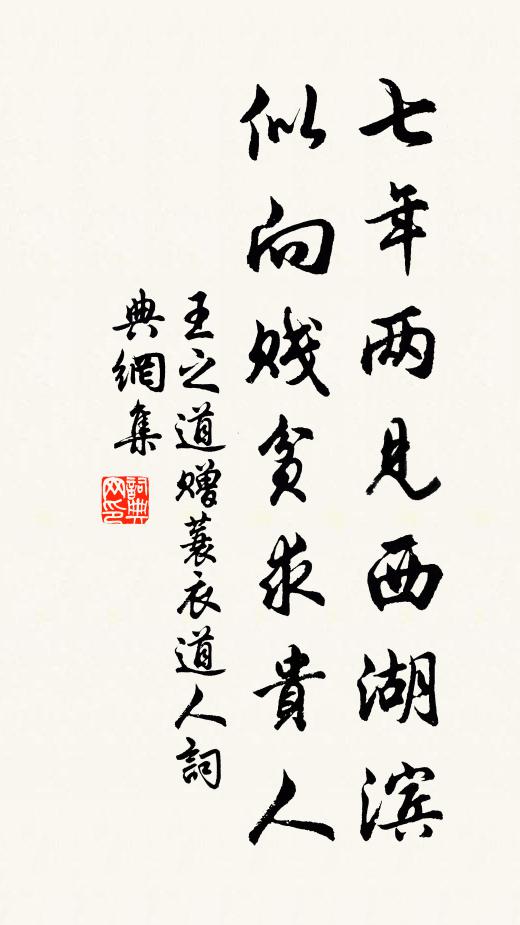 七年两见西湖滨
似向贱贫求貴人
王之道赠蓑衣道人詞
典網集
詞典
网印